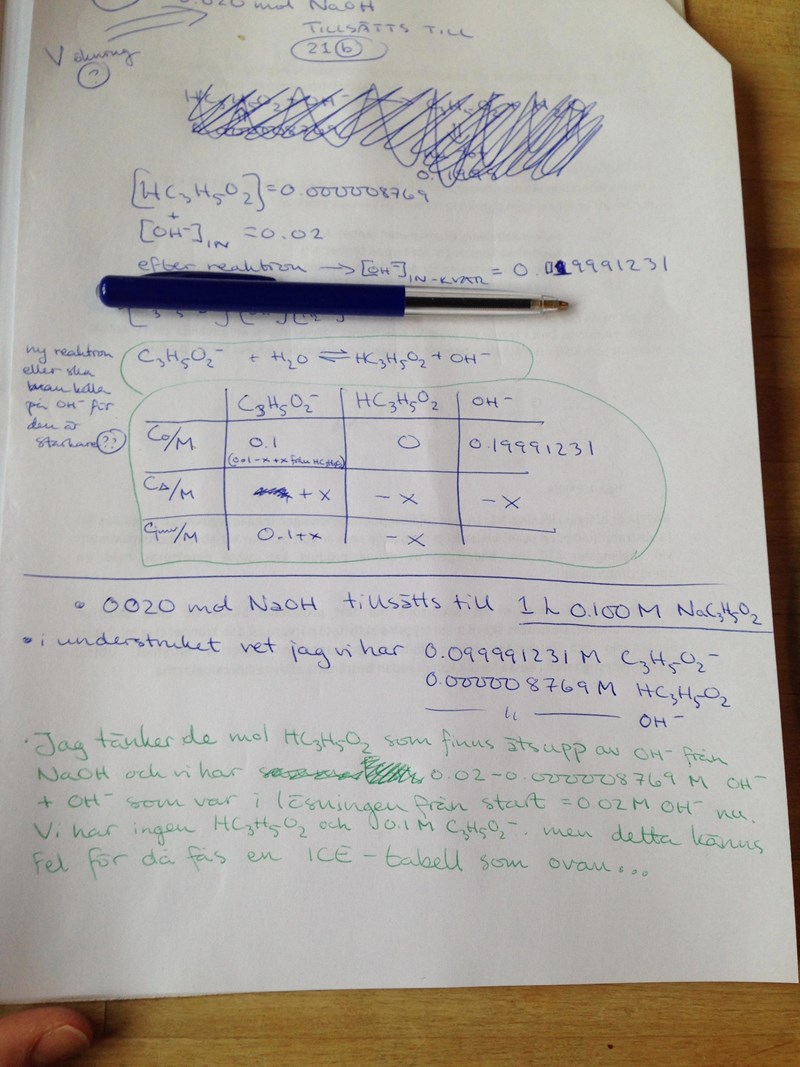 0.020 mol NaOH
TILLSÄTTS TILL
21 b
V ökning
?
[HC₃H₅O₂]=0.000008769
+
[OH⁻]IN =0.02
efter reaktion → [OH⁻]IN-KVAR = 0.019991231
ny reaktion
eller ska
man kolla
på OH⁻ för
den är
starkare ??
C₃H₅O₂⁻ + H₂O ⇌ HC₃H₅O₂ + OH⁻
C₃H₅O₂⁻ HC₃H₅O₂ OH⁻
C₀/M 0.1 0 0.19991231
(0.1-x+x från HC₃H₅O₂)
CΔ/M +x -x -x
Cjmv/M 0.1+x -x
• 0020 mol NaOH tillsätts till 1 L 0.100 M NaC₃H₅O₂
• i understruket vet jag vi har 0.099991231 M C₃H₅O₂⁻
0.000008769 M HC₃H₅O₂
—— ıı —— OH⁻
· Jag tänker de mol HC₃H₅O₂ som finns äts upp av OH⁻ från
NaOH och vi har 0.02-0.000008769 M OH⁻
+ OH⁻ som var i lösningen från start = 0.02 M OH⁻ nu.
Vi har ingen HC₃H₅O₂ och 0.1 M C₃H₅O₂⁻. men detta känns
fel för då fås en ICE-tabell som ovan...